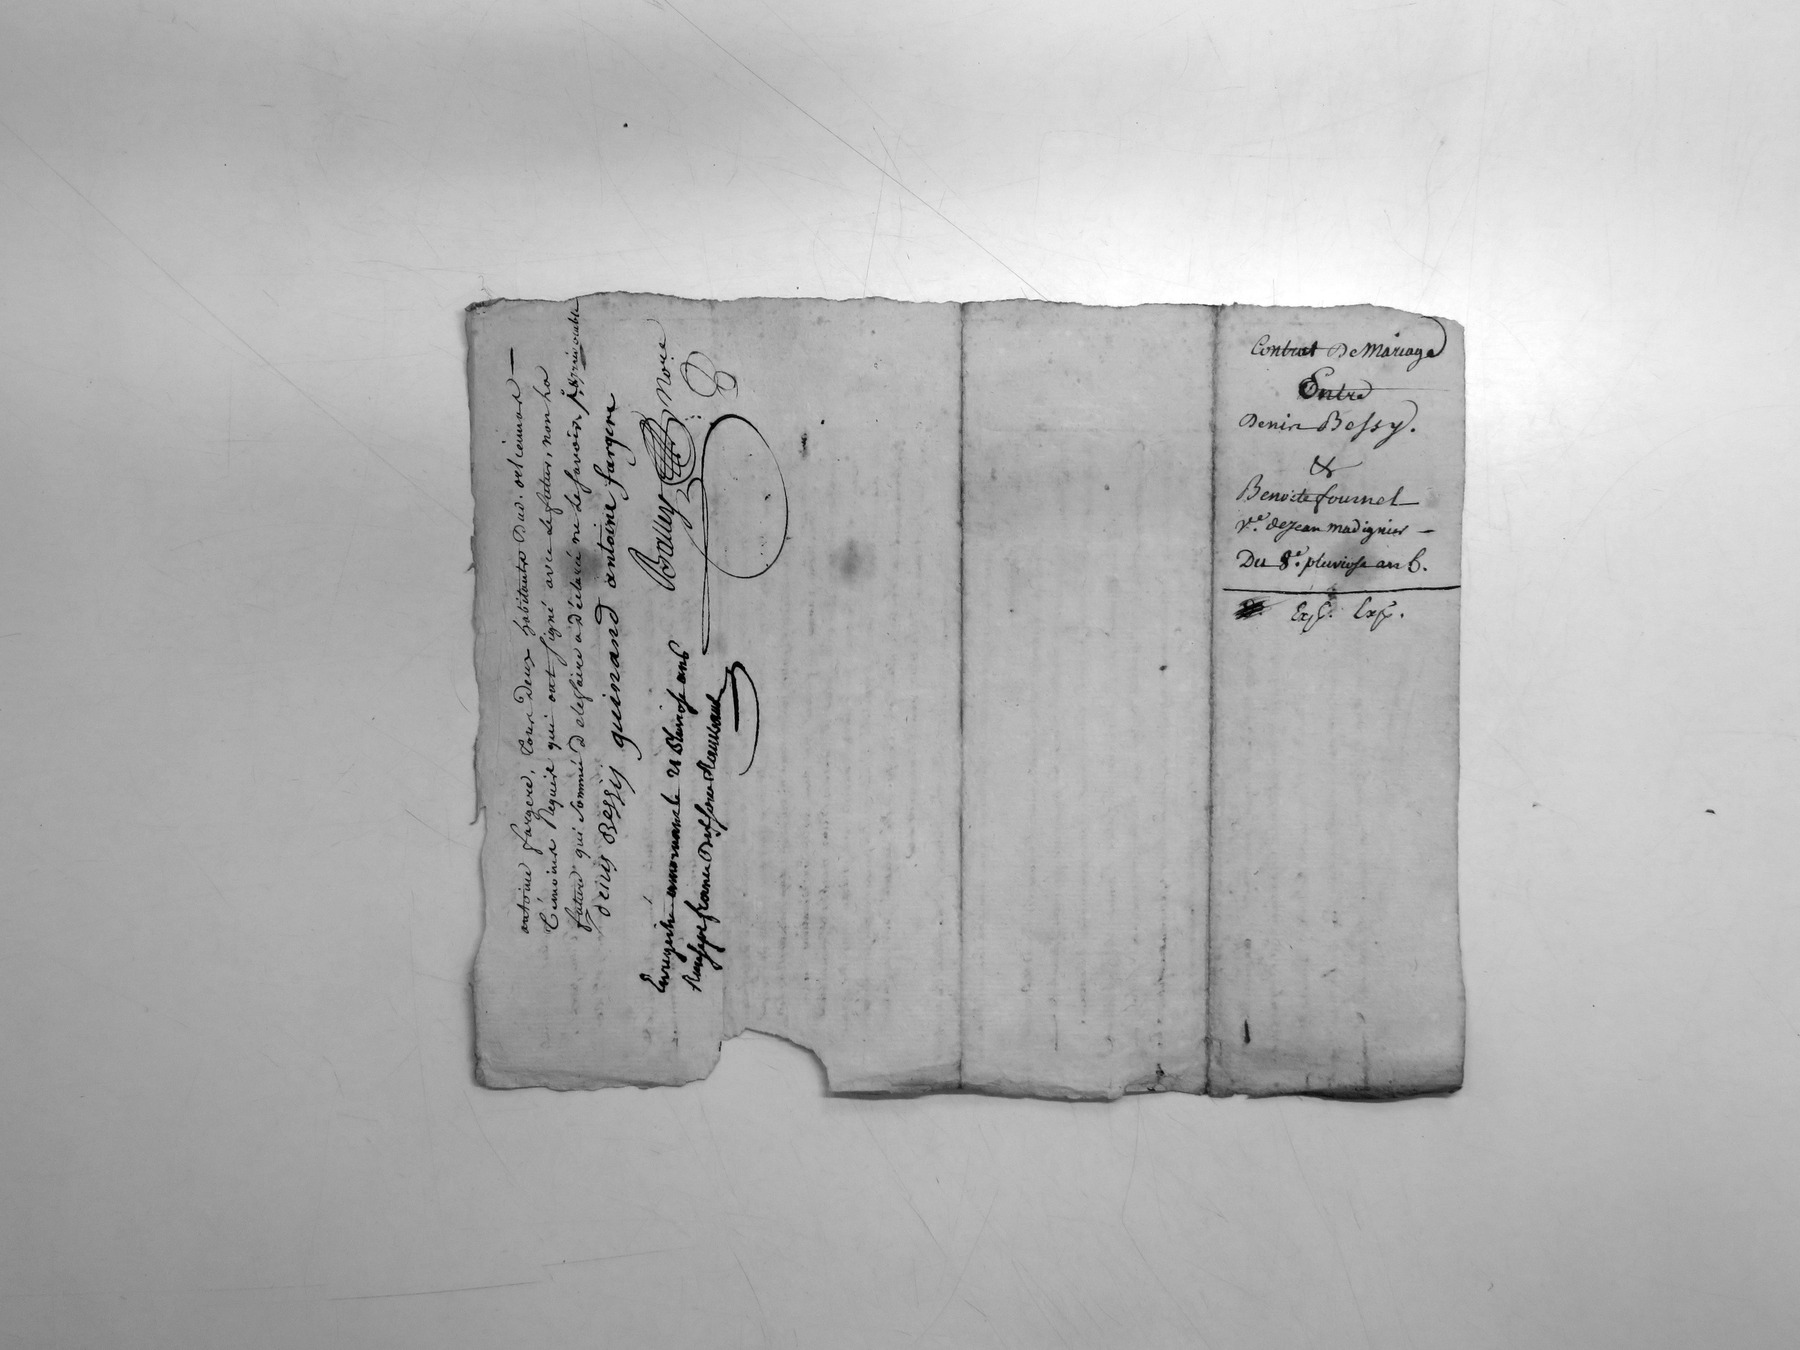 antoine fargere, tous deux habitants dud. st etienne —
témoins requis qui ont signé avec le futur, non la
future qui sommée de le faire a déclaré ne le savoir
denis Bessy guinand antoine fargere
Balley Noire
Enregistré a le 21 Pluviose an 6
Contrat De Mariage
Entre
Denis Bessy.
&
Benoite fournel
Ve. de Jean madignier —
Du 8e. pluviose an 6.
Exp. Exp.